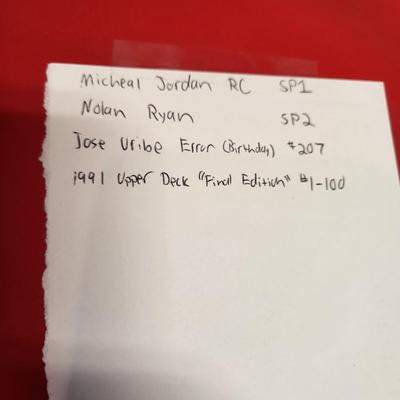 Micheal Jordan RC SP1
Nolan Ryan SP2
Jose Uribe Error (Birthday) #207
1991 Upper Deck "Final Edition" #1-100